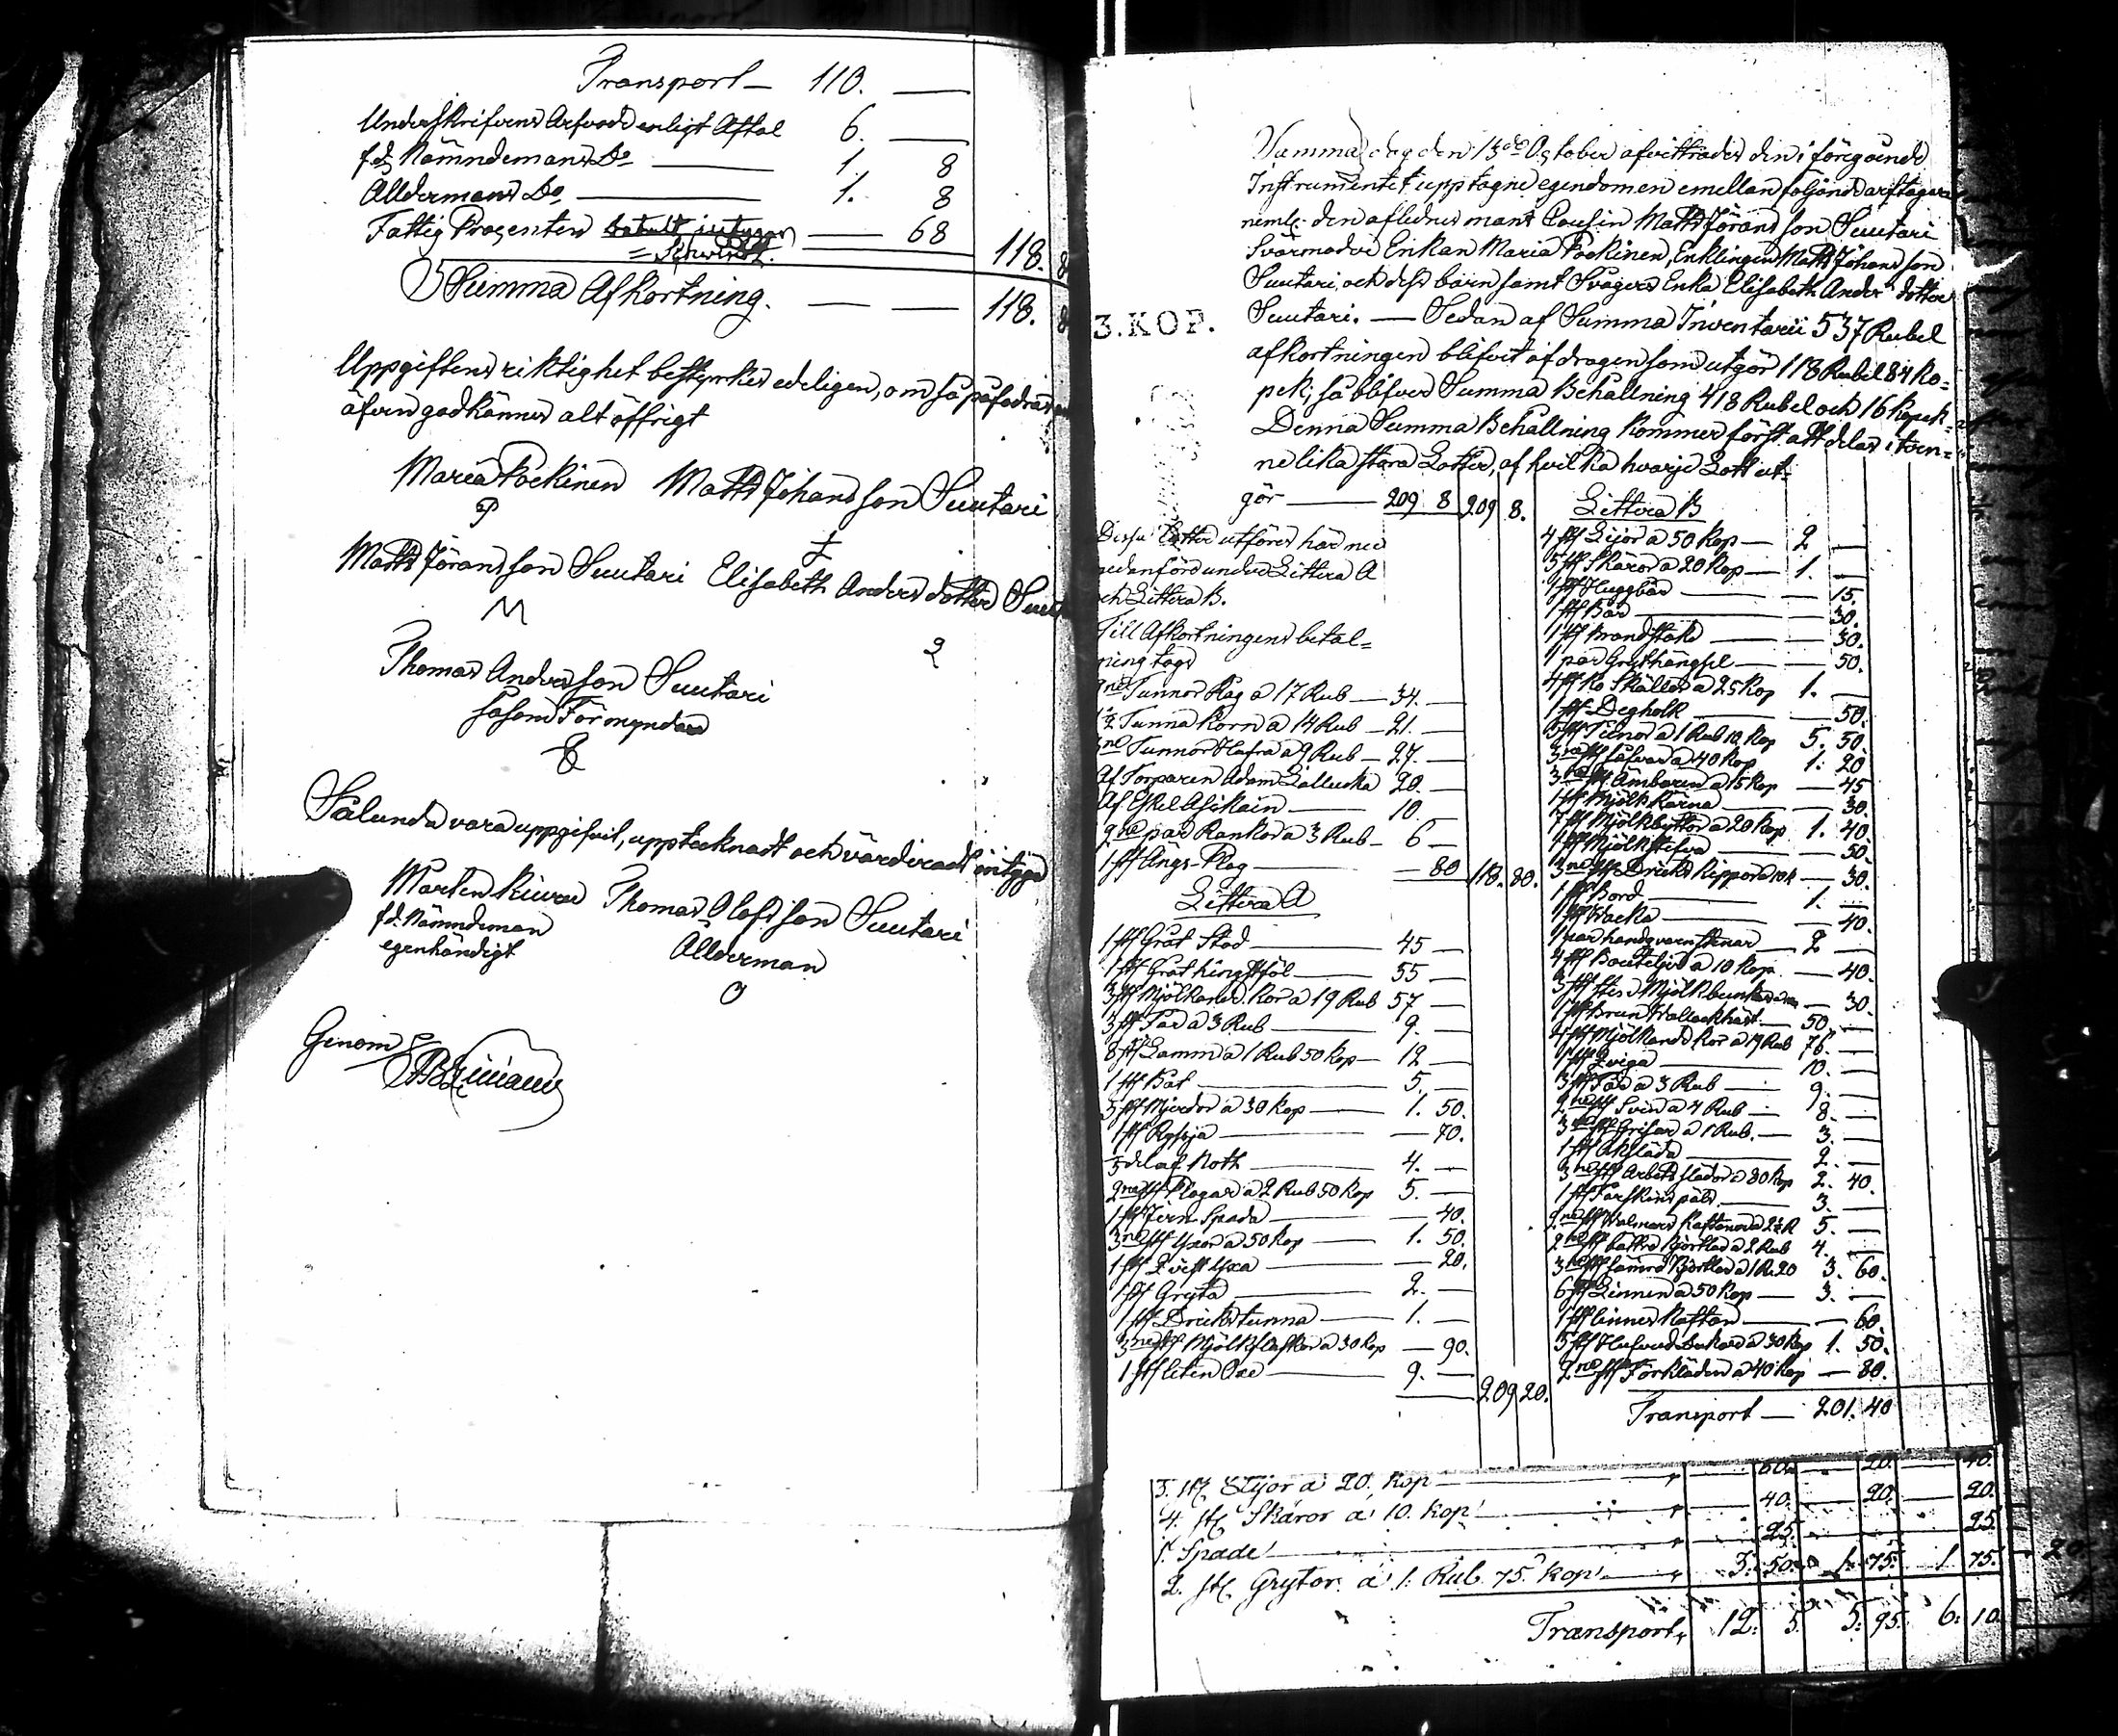 Transport — 110. —
Underskrifvens Arfvode enligt Aftal 6. —
f.d. Nämndemans Do — 1. 8
Åldermans Do — 1. 8
Fattig Procenten — 68 118. 8
Summa Afkortning. — — 118. 8
Uppgiftens riktighet bestyrkes edeligen, om så påfodras
äfven godkännes alt öffrigt
Maria Pockinen Matts Johansson Suutari
Matts Göransson Suutari Elisabeth Andersdotter
Thomas Andersson Suutari
såsom Förmyndare
Sålunda vara uppgifvit, upptecknadt och värderadt intyga
Mårten Kiuru Thomas Olofsson Suutari
f.d. Nämndeman Ålderman
egenhändigt
Genom
Samma dag den 13de October afvittrades den i föregående
Instrumentet upptagne egendomen emellan följande arftagare
neml: den aflednes mans Cousin Matts Göransson Suutari
Svärmodren Enkan Maria Pockinen, Enklingen Matts Johansson
Suutari, och dess barn samt Svågers Enka Elisabeth Andersdotter
3. KOP.
Suutari. — Sedan af Summa Inventarii 537 Rubel
afkortningen blifvit afdragen som utgör 118 Rubel 84 Ko=
pek; så blifver Summa Behållning 418 Rubel och 16 Kopek.
Denna Summa Behållning kommer först att delas i tven=
ne lika stora Lotter, af hvilka hvarje Lott ut=
gör — 209 8 209 8.
Dessa Lotter utföres här ne
nedanföre under Littera A
och Littera B.
Till Afkortningens betal=
ning tags
2ne Tunnor Råg a 17 Rub — 34. —
1½ Tunna Korn a 14 Rub — 21. —
3ne Tunnor Hafra a 9 Rub — 27. —
Af Torparen Adam 20. —
Af Eskel Asikain — 10.
2ne par Rankor a 3 Rub — 6 —
1 st Ängs-Plog — 80 118. 80.
Littera A
1 st Grå Stod — 45 —
1 st Grå hingstföl — 55 —
3 st Mjölkande Kor a 19 Rub 57 —
3 st Får a 3 Rub — 9. —
8 st Lamm a 1 Rub 50 Kop — 12 —
1 st Båt — 5. —
5 st Mjerdor a 30 Kop — 1. 50.
1 st Ryssja — 70.
del af Noth — 4. —
2ne st Plogar a 2 Rub 50 Kop 5. —
1 st Jern Spada — 40.
3ne st Yxor a 50 Kop — 1. 50.
1 st Yxa — 20.
1 st Gryta — 2. —
1 st Drickstunna — 1. —
3ne st Mjölkflaskor a 30 Kop — 90.
1 st liten Oxe — 9. —
209 20.
Littera B
4 st Lijor a 50 Kop — 2 —
5 st Skäror a 20 Kop — 1. —
1 st — 15.
1 st Bår — 30.
1 st — 30.
1 par — 50.
4 st Ko Skällor a 25 Kop 1. —
1 st Degholk — 50.
5 st Tunor a 1 Rub 10 Kop 5. 50.
3ne st Såfvar a 40 Kop 1. 20
3ne st Ämbaren a 15 Kop — 45
1 st Mjölk Kärna — 30.
7 st Mjölkbyttor a 20 Kop 1. 40
1 st — 50.
3ne st Dricks Kippor a 10 K — 30.
1 st Bord — 1. —
1 st Wacka — 40.
1 par handqvarnstenar — 2 —
4 st Bouteljer a 10 Kop. — 40.
3 st — 30.
1 st Brun Wallackhäst — 50 —
4 st Mjölkande Kor a 19 Rub 76. —
1 st Qviga — 10. —
3 st Får a 3 Rub — 9. —
2ne st Svin a 4 Rub — 8. —
3ne st Grisar a 1 Rub. — 3. —
1 st Åksläda — 2. —
3ne st Arbets slädor a 80 Kop 2. 40.
1 st Fårskins päls — 3. —
2ne st Walmars Kaftanor a 2½ R 5. —
2ne st bättre Kjortlar a 2 Rub 4. —
3ne st sämre Kjortlar a 1 R 20 3. 60.
6 st Linnen a 50 Kop — 3. —
1 st linnes Kaftan — 60.
5 st Hufvud dukar a 30 Kop 1. 50.
2ne st Förkläden a 40 Kop — 80.
Transport — 201. 40
3. st Lijor a 20. Kop — 60. — 20. — 40.
4. st Skäror á 10. Kop — 40. — 20. — 20.
1. Spade — 25. — — 25.
2. st Grytor. á 1. Rub. 75. Kop — 3. 50. 1. 75. 1. 75.
Transport, 12. 5. 5. 95. 6. 10.